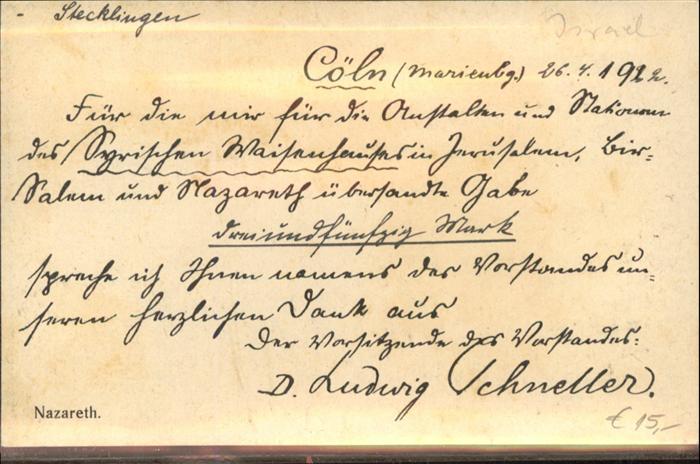 - Stecklingen
Israel
Cöln (Marienbg.) 26.4.1922.
Für die mir für die Anstalten und Stationen
des Syrischen Waisenhauses in Jerusalem, Bir=
Salem und Nazareth übersandte Gabe
dreiundfünfzig Mark
spreche ich Ihnen namens des Vorstandes un=
seren herzlichen Dank aus
Der Vorsitzende des Vorstandes:
D. Ludwig Schneller.
Nazareth.
€ 15,-